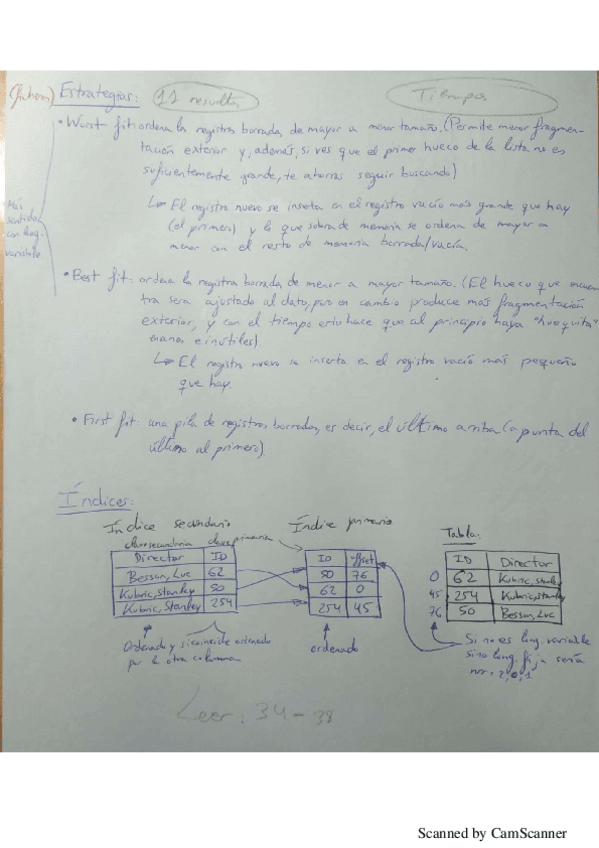 Estrategias:
Tiempos
• Worst fit: ordena los registros borrados de mayor a menor tamaño. (Permite menor fragmen-
tación exterior y, además, si ves que el primer hueco de la lista no es
suficientemente grande, te ahorras seguir buscando)
↳ El registro nuevo se inserta en el registro vacío más grande que hay
(el primero) y lo que sobra de memoria se ordena de mayor a
menor con el resto de memoria borrada/vacía.
Más
sentido
con long.
variable
• Best fit: ordena los registros borrados de menor a mayor tamaño. (El hueco que encuen-
tra será ajustado al dato, pero en cambio produce más fragmentación
exterior, y con el tiempo esto hace que al principio haya "huequitos"
enanos e inútiles).
↳ El registro nuevo se inserta en el registro vacío más pequeño
que hay.
• First fit: una pila de registros borrados, es decir, el último arriba (apunta del
último al primero)
Índices:
Índice secundario
clave secundaria clave primaria
Director ID
Besson, Luc 62
Kubric, Stanley 50
Kubric, Stanley 254
Ordenado y si coincide ordenado
por la otra columna
Índice primario
ID offset
50 76
62 0
254 45
ordenado
Tabla:
ID Director
0 62 Kubric, Stanley
45 254 Kubric, Stanley
76 50 Besson, Luc
Si no es long. variable
sino long. fija sería
nrr: 2, 0, 1
Leer: 34-38
Scanned by CamScanner